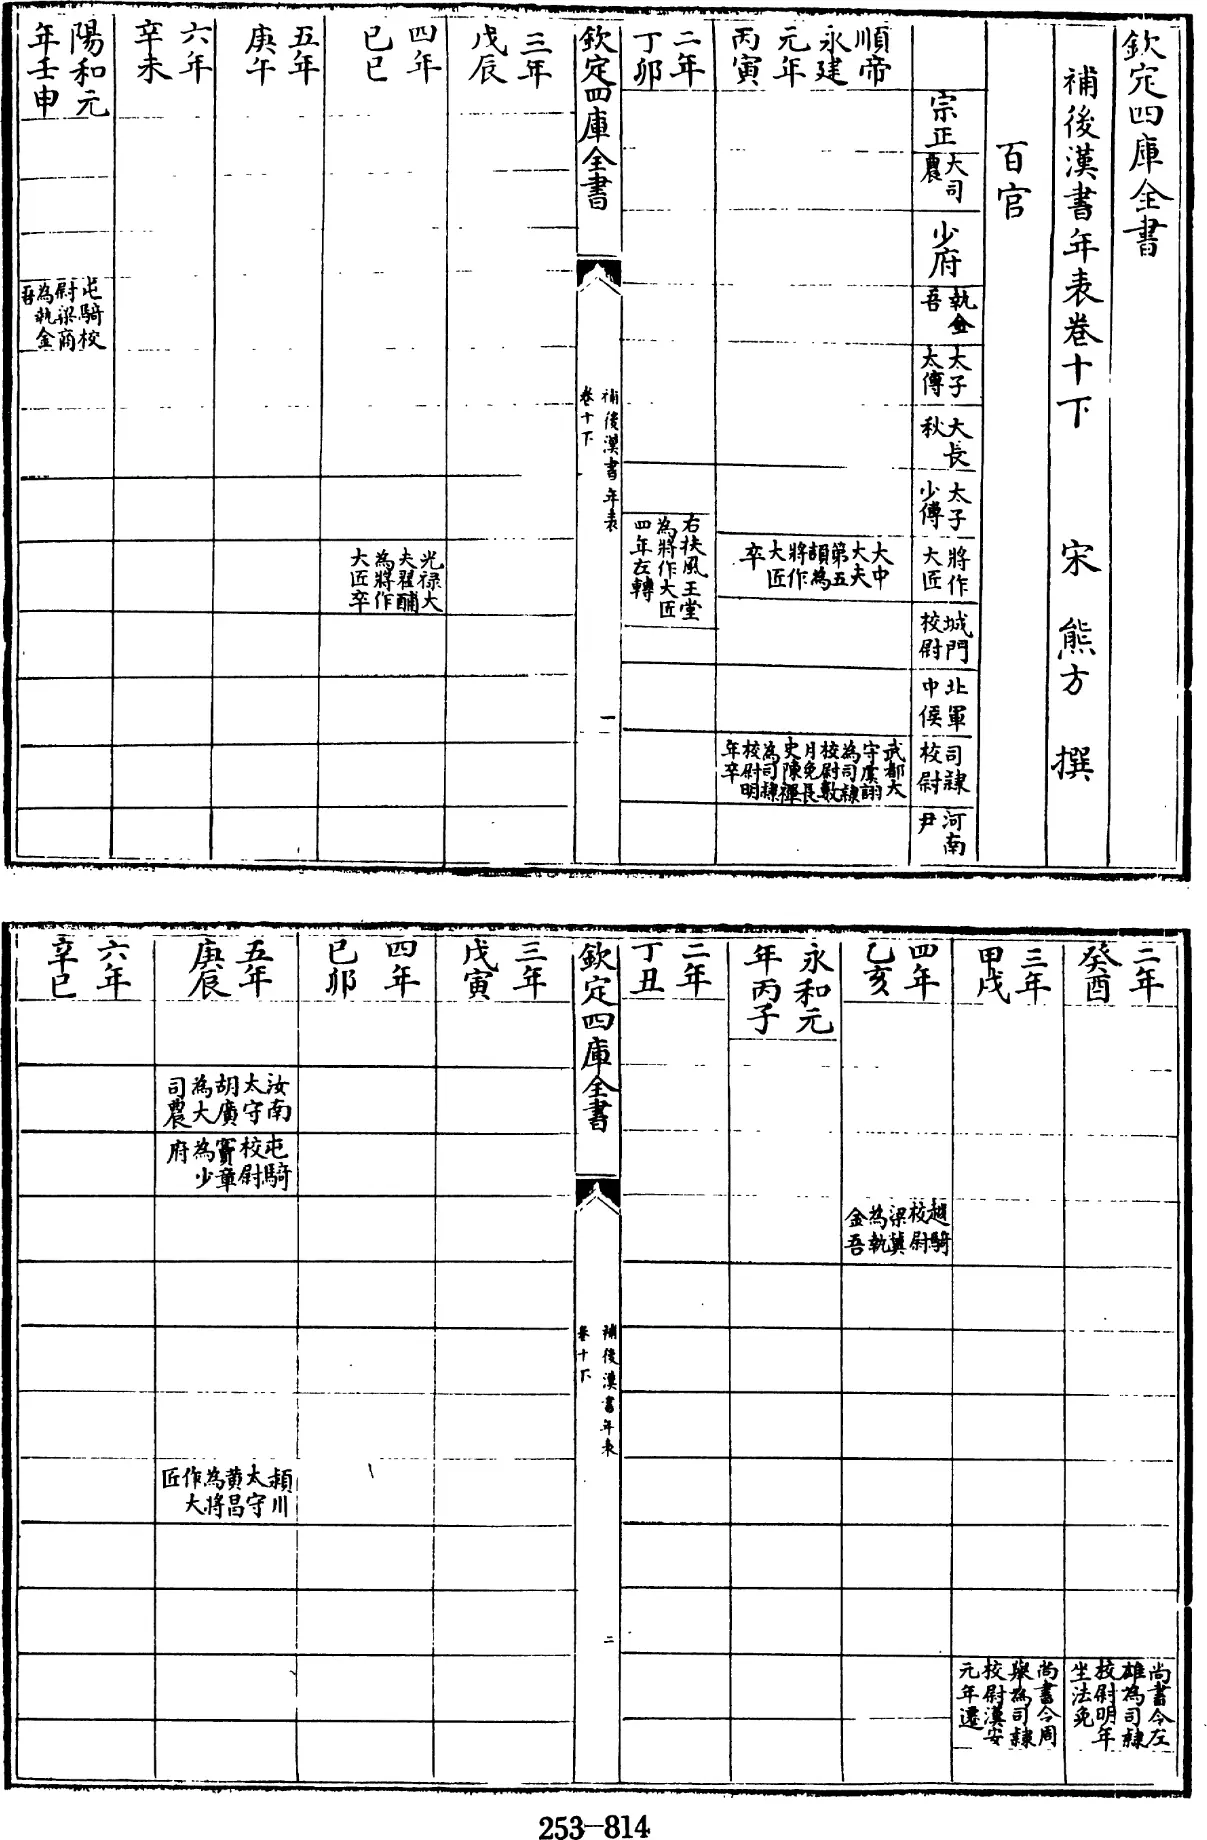 欽定四庫全書
補後漢書年表卷十下
宋 熊方 撰
百官
宗正
大司農
少府
執金吾
太子太傅
大長秋
太子少傅
將作大匠
城門校尉
北軍中候
司隸校尉
河南尹
順帝永建元年丙寅
大中大夫第五頡為將作大匠卒
武都太守虞詡為司隸校尉數月免長史陳禪為司隸校尉明年卒
二年丁卯
右扶風王堂為將作大匠四年左轉
欽定四庫全書
補後漢書年表
卷十下
一
三年戊辰
四年己巳
光禄大夫翟酺為將作大匠卒
五年庚午
六年辛未
陽和元年壬申
屯騎校尉梁商為執金吾
二年癸酉
尚書令左雄為司隸校尉明年坐法免
三年甲戌
尚書令周舉為司隸校尉漢安元年遷
四年乙亥
越騎校尉梁冀為執金吾
永和元年丙子
二年丁丑
欽定四庫全書
補後漢書年表
卷十下
二
三年戊寅
四年己卯
五年庚辰
汝南太守胡廣為大司農
屯騎校尉竇章為少府
潁川太守黄昌為將作大匠
六年辛巳
253-814